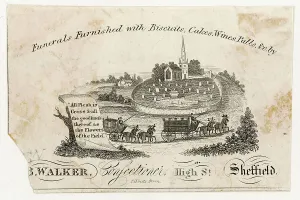 Funerals Furnished with Biscuits, Cakes, Wines, Palls, &c by
All Flesh is
Grass & all
the goodliness
thereof is as
the Flower
of the Field.
B. WALKER, High St Sheffield.